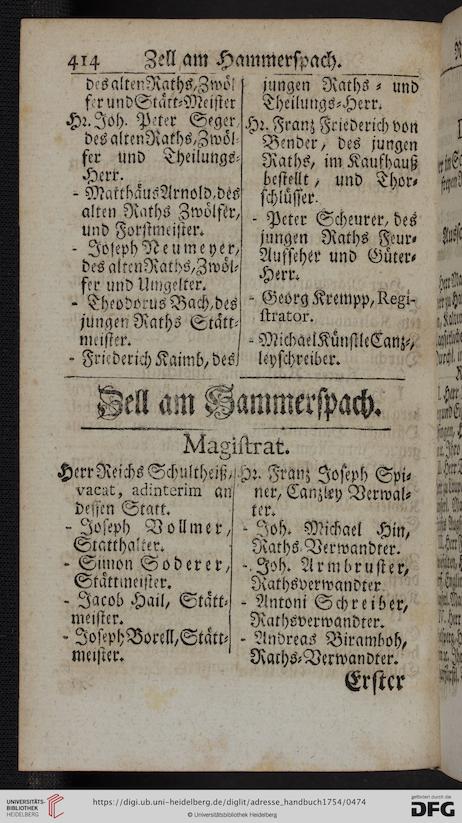 414 Zell am Hammerspach.
des alten Raths, Zwöl-
fer und Stätt-Meister
Hr. Joh. Peter Seger,
des alten Raths, Zwöl-
fer und Theilungs-
Herr.
- Matthäus Arnold, des
alten Raths Zwölfer,
und Forstmeister.
- Joseph Neumeyer,
des alten Raths, Zwöl-
fer und Umgelter.
- Theodorus Bach, des
jungen Raths Stätt-
meister.
- Friederich Kaimb, des
jungen Raths - und
Theilungs-Herr.
Hr. Franz Friederich von
Bender, des jungen
Raths, im Kaufhauß
bestellt, und Thor-
schlüsser.
- Peter Scheurer, des
jungen Raths Feur-
Aufseher und Güter-
Herr.
- Georg Krempp, Regi-
strator.
- Michael Künstle Canz-
leyschreiber.
Zell am Hammerspach.
Magistrat.
Herr Reichs Schultheiß,
vacat, adinterim an
dessen Statt.
- Joseph Vollmer,
Statthalter.
- Simon Soderer,
Stättmeister.
- Jacob Hail, Stätt-
meister.
- Joseph Borell, Stätt-
meister.
Hr. Franz Joseph Spi-
ner, Canzley Verwal-
ter.
- Joh. Michael Hin,
Raths-Verwandter.
- Joh. Armbruster,
Rathsverwandter
- Antoni Schreiber,
Rathsverwandter.
- Andreas Biramboh,
Raths-Verwandter.
Erster
UNIVERSITÄTS-
BIBLIOTHEK
HEIDELBERG
https://digi.ub.uni-heidelberg.de/diglit/adresse_handbuch1754/0474
© Universitätsbibliothek Heidelberg
gefördert durch die
DFG